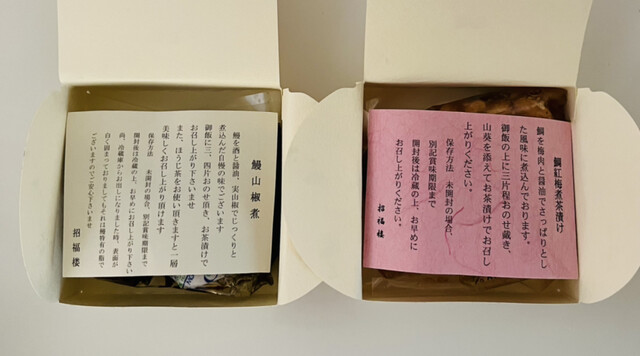 鰻山椒煮
鰻を酒と醤油、実山椒でじっくりと
煮込んだ自慢の味でございます
御飯に三、四片おのせ頂き、お茶漬けで
お召し上がり下さいませ
また、ほうじ茶をお使い頂きますと一層
美味しくお召し上がり頂けます
保存方法　未開封の場合、別記賞味期限まで
開封後は冷蔵の上、お早めにお召し上がり下さい
尚、冷蔵庫からお出しになりました時、表面が
白く固まっておりましてもそれは鰻特有の脂で
ございますのでご安心下さいませ
招福楼
鯛紅梅煮茶漬け
鯛を梅肉と醤油でさっぱりとし
た風味に煮込んでおります。
御飯の上に三片程のせ戴き、
山葵を添えてお茶漬けでお召し
上がりください。
保存方法　未開封の場合、
別記賞味期限まで
開封後は冷蔵の上、お早めに
お召し上がりください。
招福楼